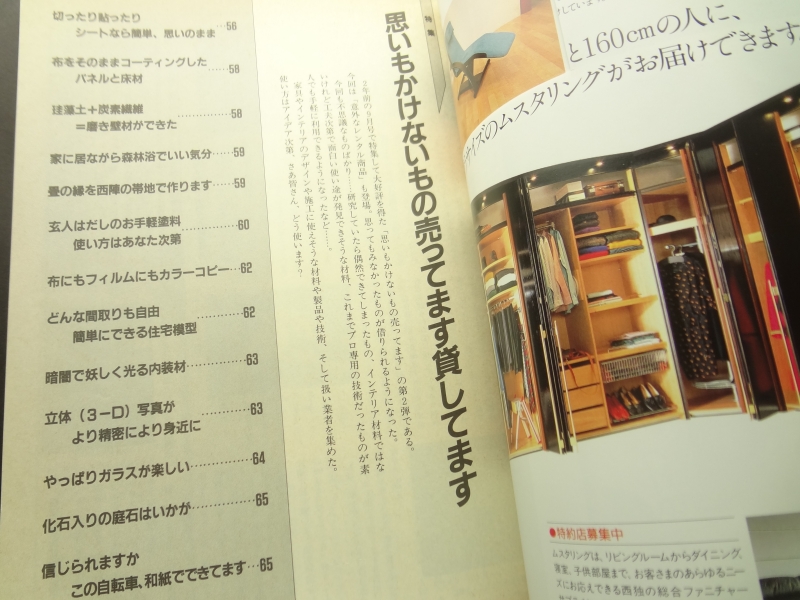 切ったり貼ったり
シートなら簡単、思いのまま……56
布をそのままコーティングした
パネルと床材……58
珪藻土＋炭素繊維
＝磨き壁材ができた……58
家に居ながら森林浴でいい気分……59
畳の縁を西陣の帯地で作ります……59
玄人はだしのお手軽塗料
使い方はあなた次第……60
布にもフィルムにもカラーコピー…62
どんな間取りも自由
簡単にできる住宅模型……62
暗闇で妖しく光る内装材……63
立体（3－D）写真が
より精密により身近に……63
やっぱりガラスが楽しい……64
化石入りの庭石はいかが……65
信じられますか
この自転車、和紙でできてます…65
特集
思いもかけないもの売ってます貸してます
2年前の9月号で特集して大好評を得た「思いもかけないもの売ってます」の第2弾である。
今回は「意外なレンタル商品」も登場。思ってもみなかったものが借りられるようになった。
今回も不思議なものばかり――研究していたら偶然できてしまったもの、インテリア材料ではな
いけれど工夫次第で面白い使い途が発見できそうな材料、これまでプロ専用の技術だったものが素
人でも手軽に利用できるようになったなど……。
家具やインテリアのデザインや施工に使えそうな材料や製品や技術、そして扱い業者を集めた。
使い方はアイデア次第。さあ皆さん、どう使います？
と160cmの人に、
サイズのムスタリングがお届けできます
●特約店募集中
ムスタリングは、リビングルームからダイニング、
寝室、子供部屋まで、お客さまのあらゆるニー
ズにお応えできる西独の総合ファニチャー